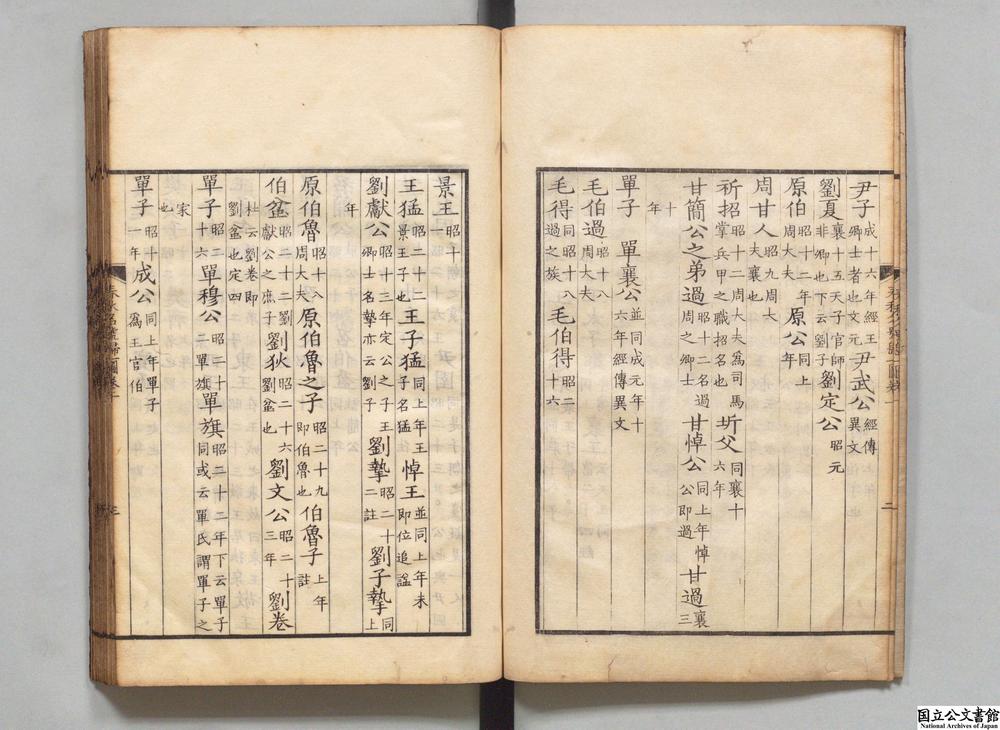 尹子成十六年經王卿士者也文元尹武公經傳異文
劉夏襄十五天子官師非卿也下云劉子劉定公昭元
原伯昭十二年周大夫原公同上年
周甘人昭九周大夫襄也
祈招昭十二周大夫爲司馬掌兵甲之職招名也圻父同襄十六年
甘簡公之弟過昭十二名過周之卿士甘悼公同上年悼公即過甘過襄三
十年
單子 單襄公並同成元年十六年經傳異文
毛伯過昭十八周大夫
毛得同昭十八過之族毛伯得昭二十六
二
景王昭十
王猛昭二十二景王子也王子猛同上年王子名猛悼王並同上年未即位追謚
劉獻公昭十三年定公之子王卿士名摯亦云劉子劉摯昭二十二註劉子摯同上
年
原伯魯昭十八周大夫原伯魯之子昭二十九即伯魯也伯魯子上年註
伯盆昭二十二劉獻公之庶子劉狄昭二十六劉盆也劉文公昭二十三年劉卷
杜云劉卷即劉盆也定四
單子昭二十六單穆公昭二十二單旗單旗昭二十二年下云單子同或云單氏謂單子之
家也
單子昭十一年成公同上年單子爲王官伯
三
国立公文書館
National Archives of Japan